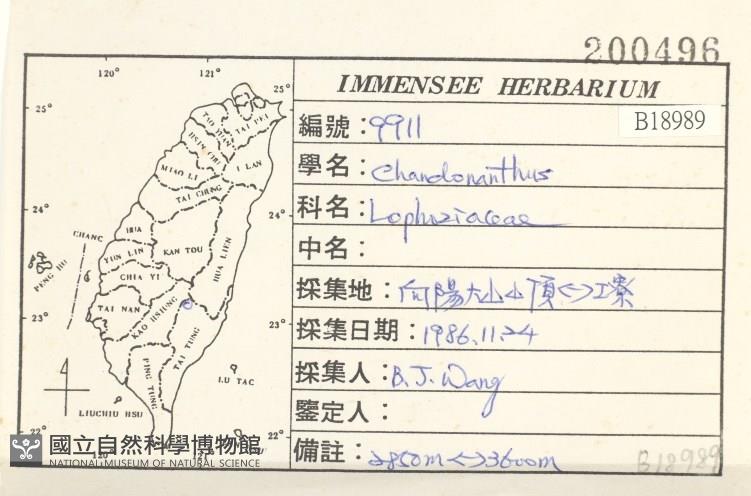 200496
IMMENSEE HERBARIUM
B18989
編號：9911
學名：Chandonanthus
科名：Lophoziaceae
中名：
採集地：向陽大山山頂<->工寮
採集日期：1986.11.24
採集人：B.J.Wang
鑒定人：
備註：2850m<->3600m
B18989
120° 121°
25° 25°
24° 24°
23° 23°
22° 22°
120° 121°
TAO YUEN
TAI PEI
HSIN CHU
MIAO LI
I LAN
TAI CHUNG
CHANG
HUA
KAN TOU
HUA LIEN
YUN LIN
PENG HU
CHIA YI
TAI NAN
KAO HSIUNG
TAI TUNG
PING TUNG
LU TAO
LIUCHIU HSU
國立自然科學博物館
NATIONAL MUSEUM OF NATURAL SCIENCE